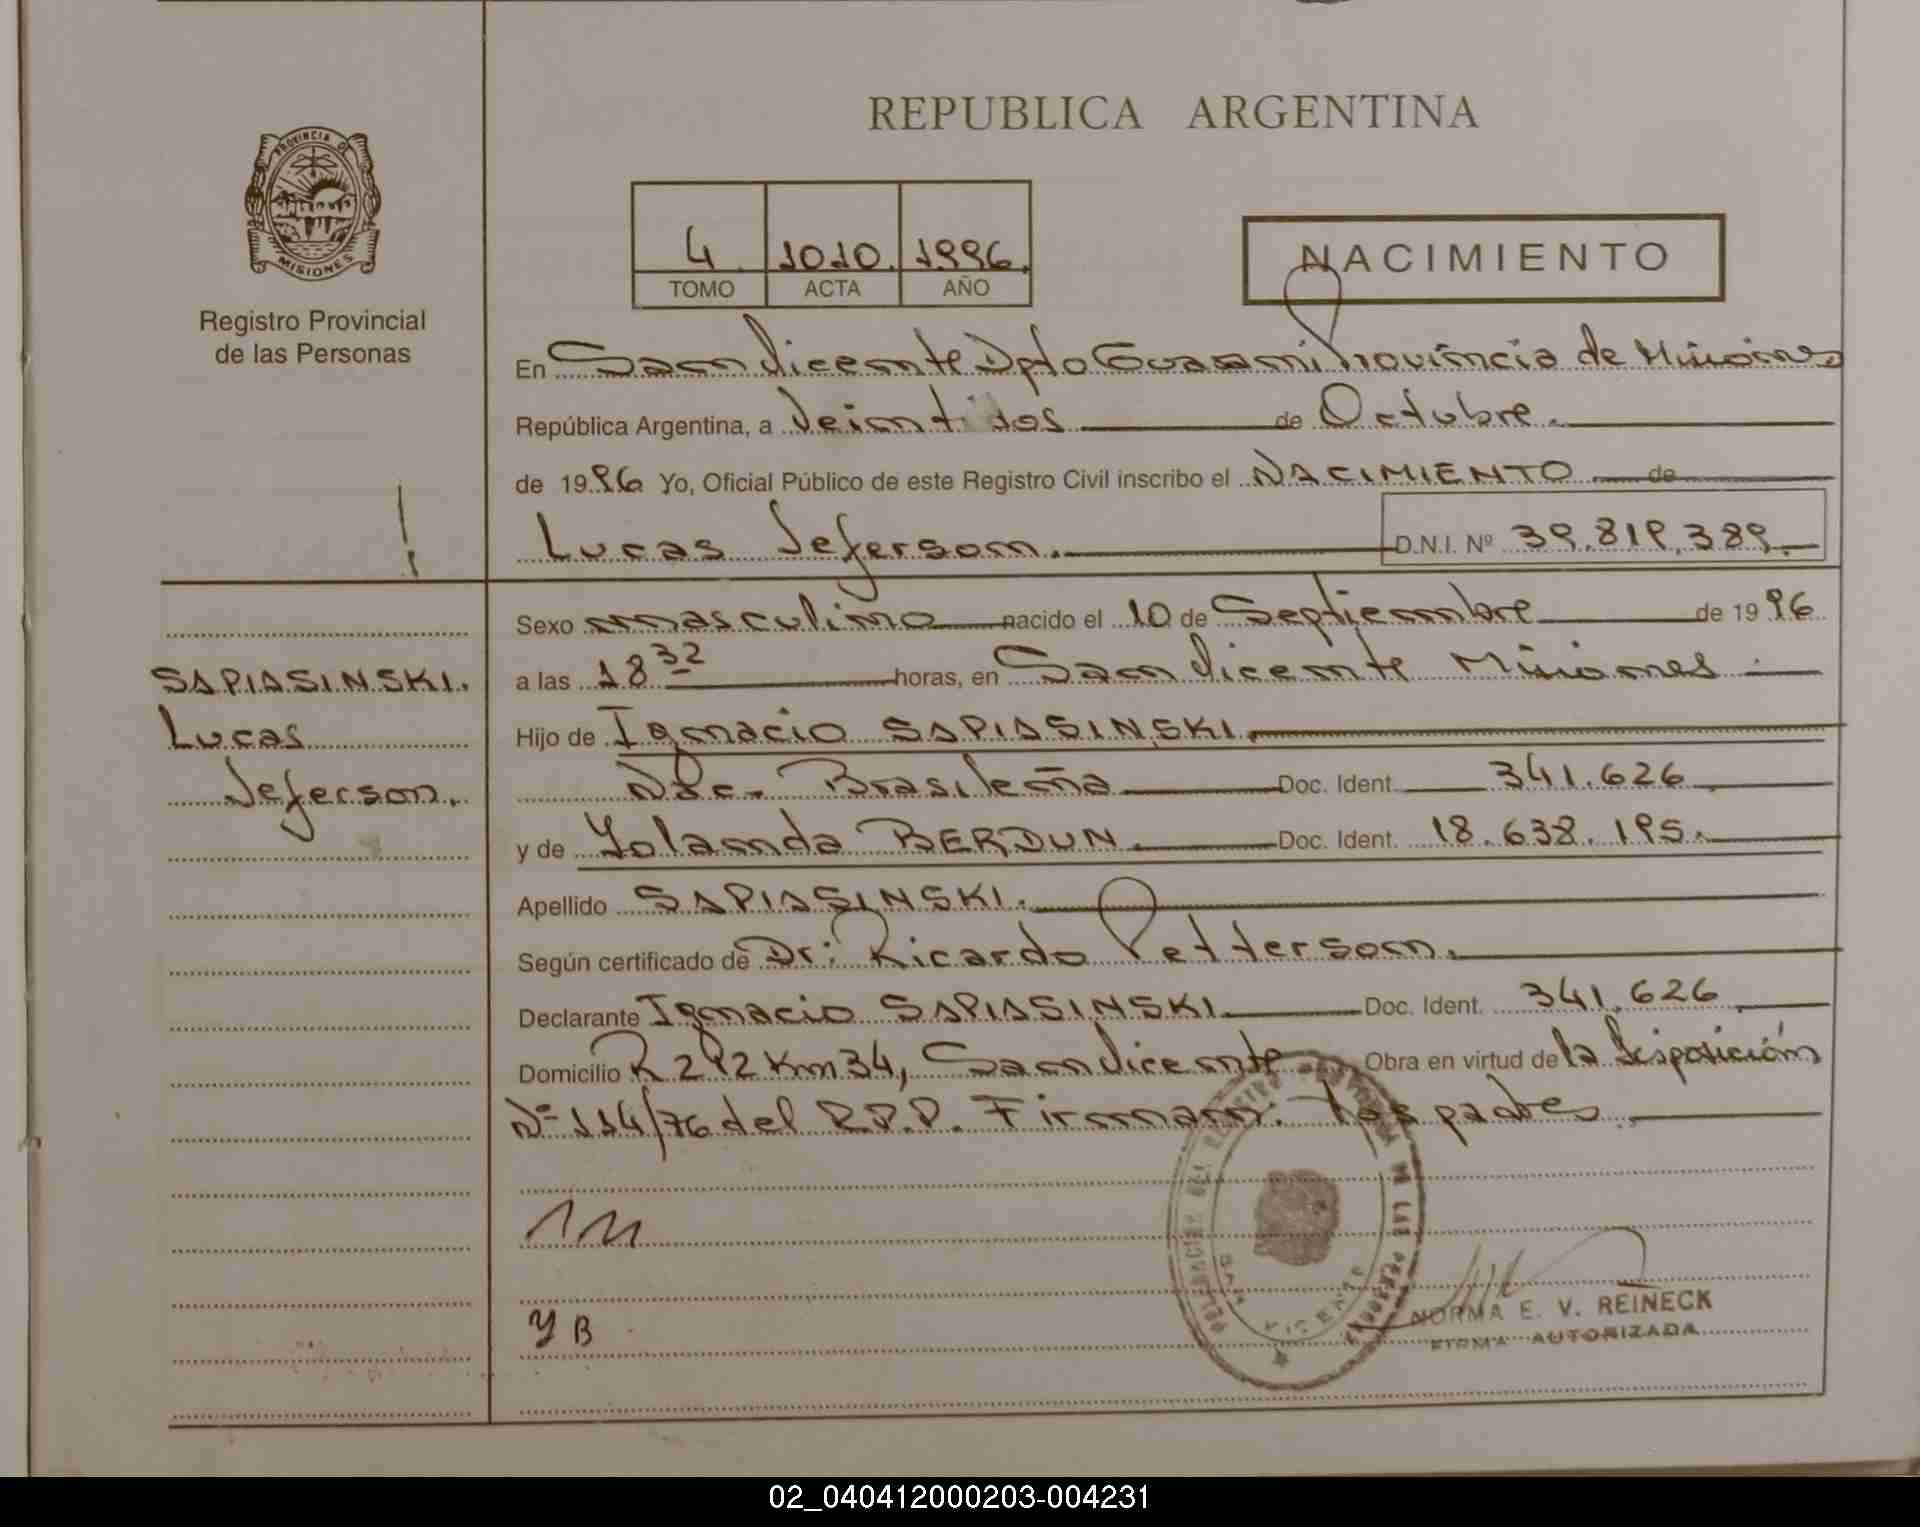 PROVINCIA DE
MISIONES
Registro Provincial
de las Personas
REPUBLICA ARGENTINA
4 1010. 1996.
TOMO ACTA AÑO
NACIMIENTO
En San Vicente Dpto Guarani Provincia de Misiones
República Argentina, a Veintidos de Octubre.
de 1996 Yo, Oficial Público de este Registro Civil inscribo el NACIMIENTO de
Lucas Jeferson. D.N.I. Nº 39.819.389.
SAPIASINSKI.
Lucas
Jeferson.
Sexo masculino nacido el 10 de Septiembre de 1996
a las 18 32 horas, en San Vicente Misiones
Hijo de Ignacio SAPIASINSKI.
Nac. Brasileña Doc. Ident. 341.626
y de Yolanda BERDUN. Doc. Ident. 18.638.195.
Apellido SAPIASINSKI.
Según certificado de Dr: Ricardo Petterson.
Declarante Ignacio SAPIASINSKI Doc. Ident. 341.626
Domicilio R 2 y 12 Km 34, San Vicente Obra en virtud de la Disposición
Nº 114/76 del R.P.P. Firman: los padres
Y B
SAN VICENTE
NORMA E. V. REINECK
FIRMA AUTORIZADA
02_040412000203-004231